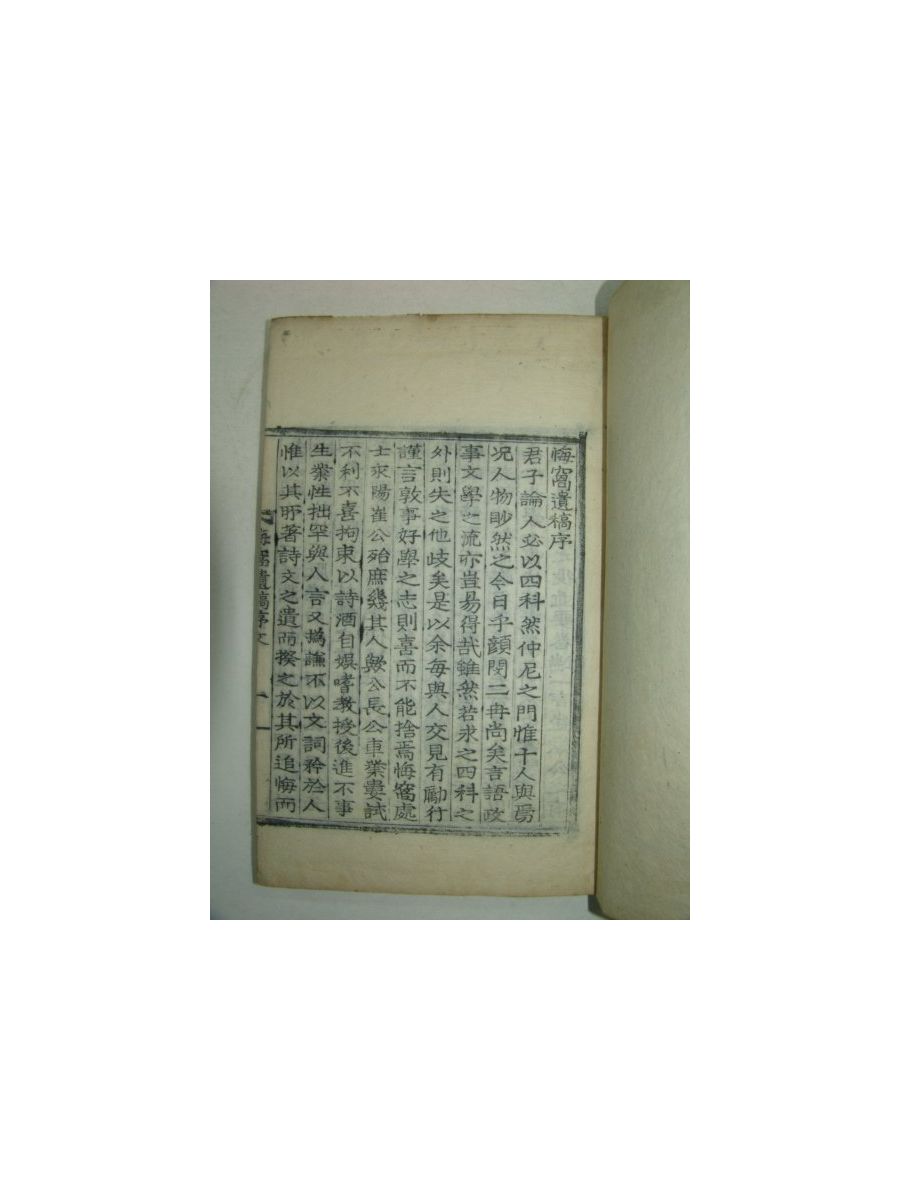 悔窩遺稿序
君子論人必以四科然仲尼之門惟十人與焉
况人物眇然之今日乎顔閔二冉尚矣言語政
事文學之流亦豈易得哉雖然若求之四科之
外則失之他歧矣是以余每與人交見有勵行
謹言敦事好學之志則喜而不能捨焉悔窩處
士永陽崔公殆庶幾其人歟公長公車業屢試
不利不喜拘束以詩酒自娛嗜教授後進不事
生業性拙罕與人言又撝謙不以文詞矜於人
惟以其所著詩文之遺而揆之於其所追悔而
悔窩遺稿序文
一